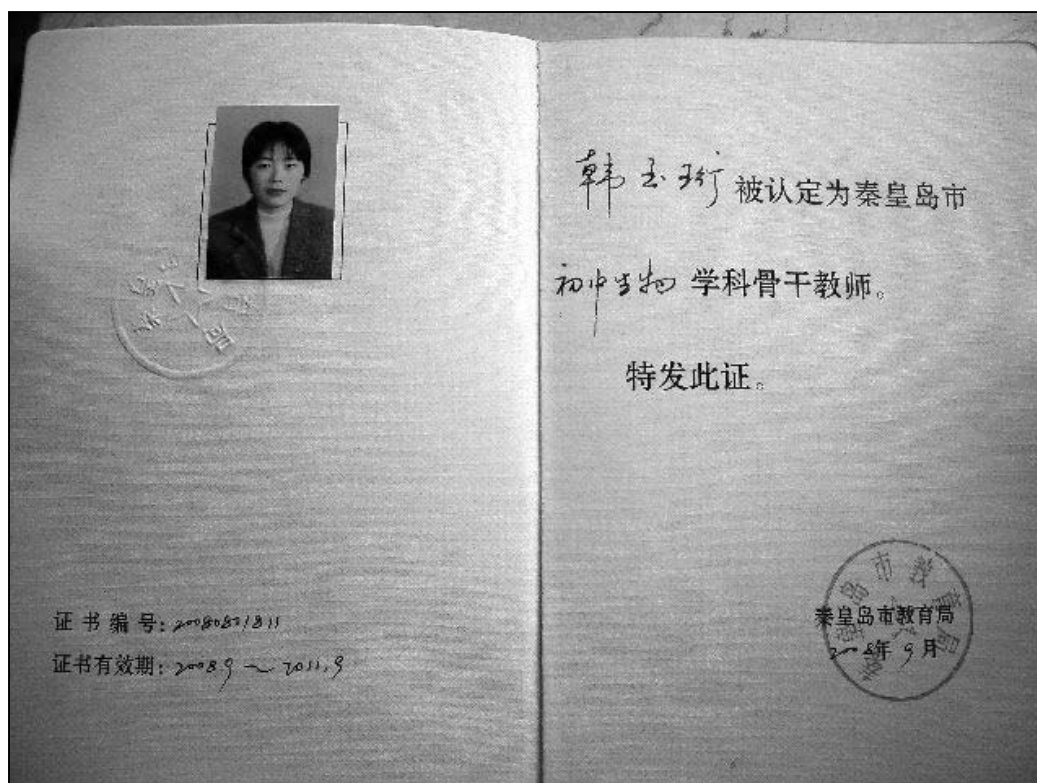 证书编号:20080801811
证书有效期:2008.9～2011.9
韩玉珩 被认定为秦皇岛市
初中生物 学科骨干教师。
特发此证。
秦皇岛市教育局
2008年9月
秦皇岛市教育局